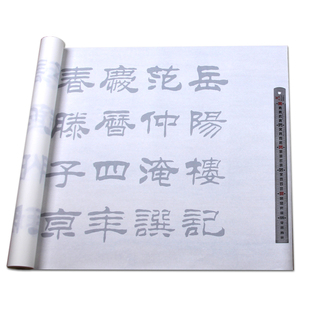 岳陽樓記
范仲淹譔
慶曆四年
春滕子京